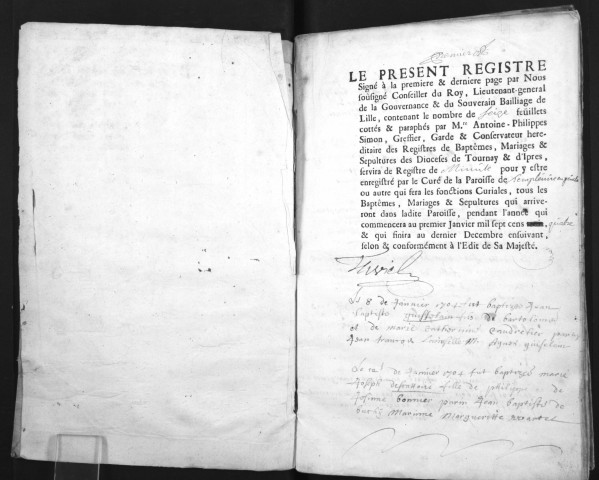 LE PRESENT REGISTRE
Signé à la premiere & derniere page par Nous
sousigné Conseiller du Roy, Lieutenant-general
de la Gouvernance & du Souverain Bailliage de
Lille, contenant le nombre de seize feüillets
cottés & paraphés par M.re Antoine-Philippes
Simon, Greffier, Garde & Conservateur here-
ditaire des Registres de Baptêmes, Mariages &
Sepultures des Dioceses de Tournay & d'Ipres,
servira de Registre de Minute pour y estre
enregistré par le Curé de la Paroisse de
ou autre qui fera les fonctions Curiales, tous les
Baptêmes, Mariages & Sepultures qui arrive-
ront dans ladite Paroisse, pendant l'année qui
commencera au premier Janvier mil sept cens quatre
& qui finira au dernier Decembre ensuivant,
selon & conformément à l'Edit de Sa Majesté.
Le 8 de Janvier 1704 fut baptizé Jean
baptiste fils de bartolomé
et de marie catherinne
Jean francois
de Janvier 1704 fut baptizée marie
Joseph fille de philippe
bonnier parin Jean baptiste de
Marinne Margueritte